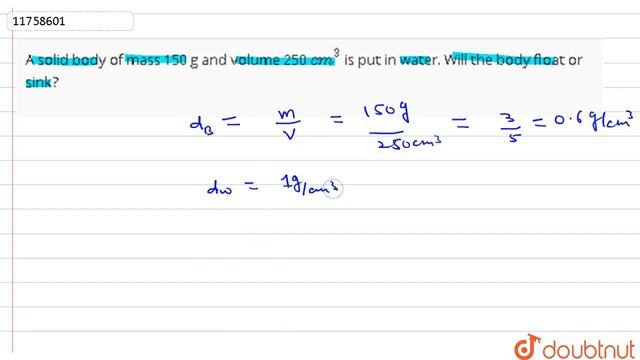 11758601
A solid body of mass 150 g and volume 250 cm³ is put in water. Will the body float or
sink?
d_B = m/V = 150g/250cm³ = 3/5 = 0.6 g/cm³
d_w = 1g/cm³
doubtnut